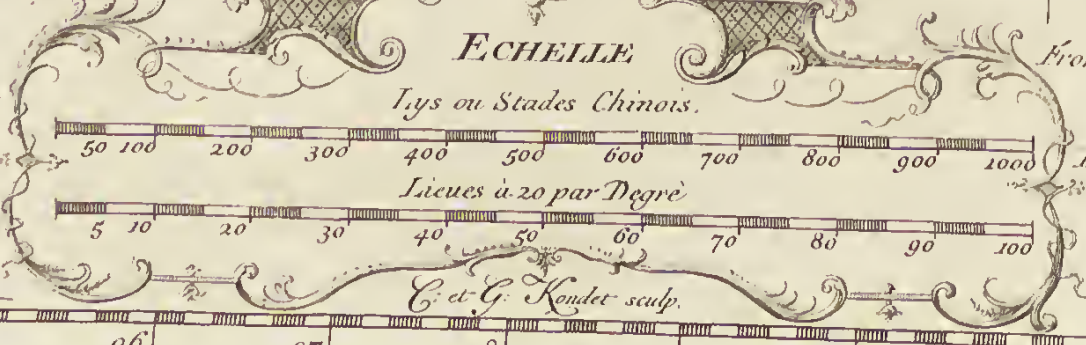 ECHELLE
Lys ou Stades Chinois.
50 100 200 300 400 500 600 700 800 900 1000
Lieues à 20 par Degré
5 10 20 30 40 50 60 70 80 90 100
C. et G. Kondet sculp.